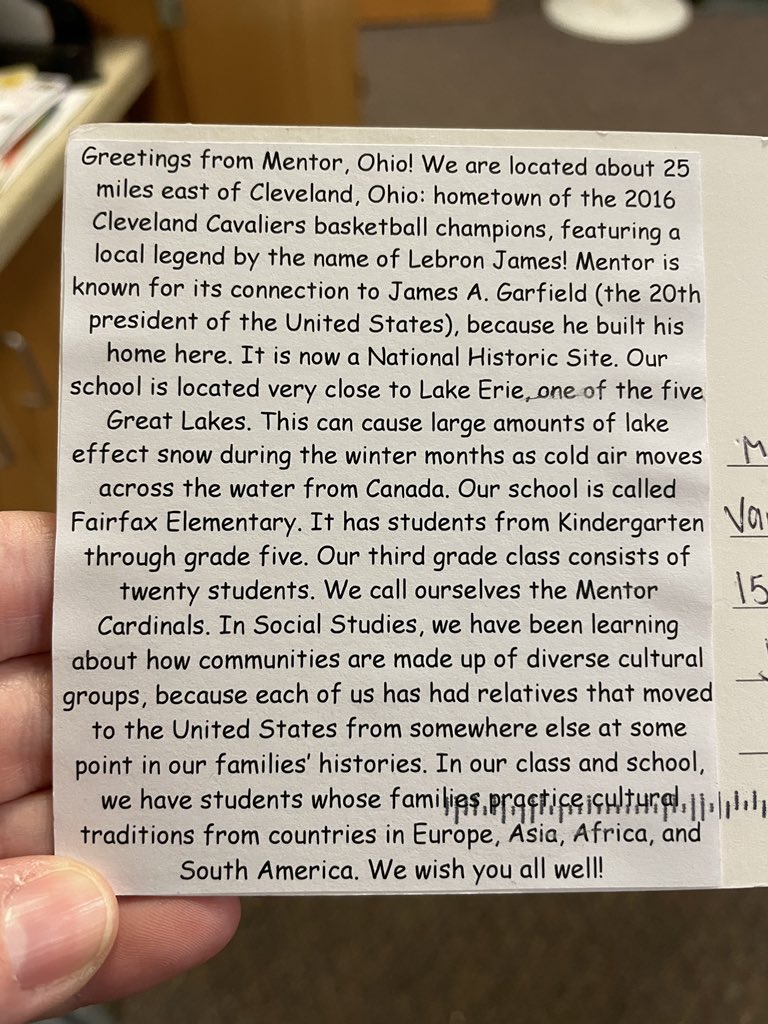 Greetings from Mentor, Ohio! We are located about 25
miles east of Cleveland, Ohio: hometown of the 2016
Cleveland Cavaliers basketball champions, featuring a
local legend by the name of Lebron James! Mentor is
known for its connection to James A. Garfield (the 20th
president of the United States), because he built his
home here. It is now a National Historic Site. Our
school is located very close to Lake Erie, one of the five
Great Lakes. This can cause large amounts of lake
effect snow during the winter months as cold air moves
across the water from Canada. Our school is called
Fairfax Elementary. It has students from Kindergarten
through grade five. Our third grade class consists of
twenty students. We call ourselves the Mentor
Cardinals. In Social Studies, we have been learning
about how communities are made up of diverse cultural
groups, because each of us has had relatives that moved
to the United States from somewhere else at some
point in our families' histories. In our class and school,
we have students whose families practice cultural
traditions from countries in Europe, Asia, Africa, and
South America. We wish you all well!
15